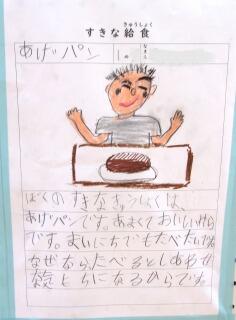 きゅうしょく
すきな給食
あげパン
1の
なまえ
ぼくのすきなきゅうしょくは、
あげパンです。あまくておいしいから
です。まいにちでもたべたいです。
なぜなら、たべるとしあわせ
な気もちになるからです。